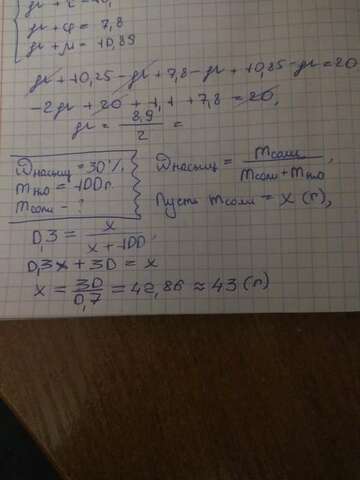 gr + φ = 7,8
gr + μ = 10,85
gr + 10,25 - gr + 7,8 - gr + 10,85 - gr = 20
-2gr + 20 + 1,1 + 7,8 = 20,
gr = 8,9/2 =
ωнасыщ = 30%
mH₂O = 100 г.
mсоли - ?
ωнасыщ = mсоли/(mсоли + mH₂O),
Пусть mсоли = x (г),
0,3 = x/(x + 100),
0,3x + 30 = x
x = 30/0,7 = 42,86 ≈ 43 (г)